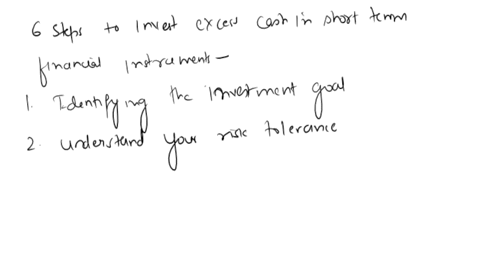 6 Steps to invest excess cash in short term
financial instrument -
1. Identifying the investment goal
2. understand your risk tolerance